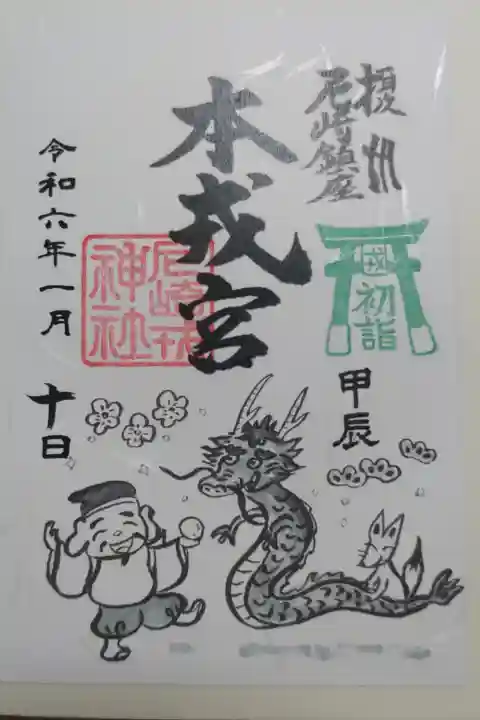 摂州
尼崎鎮座
戎
初詣
甲辰
本戎宮
尼崎戎
神社
令和六年一月
十日